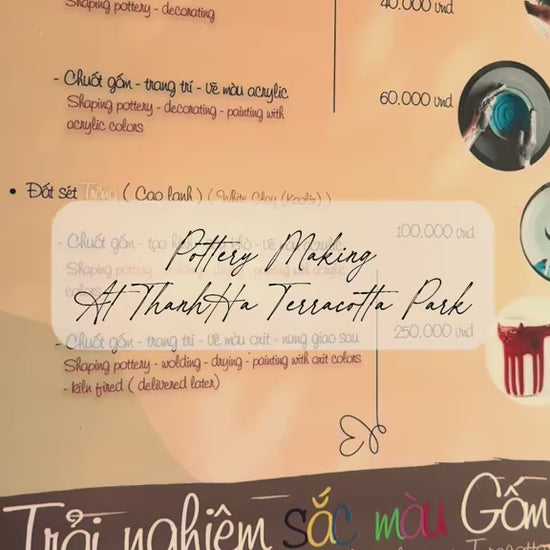 Shaping pottery - decorating
40.000 vnd
- Chuốt gốm - trang trí - vẽ màu acrylic
60.000 vnd
Shaping pottery - decorating - painting with
acrylic colors
• Đất sét Trắng ( Cao lanh ) ( White Clay (Kaolin) )
- Chuốt gốm - tạo - vẽ màu acrylic
100.000 vnd
Shaping pottery - painting with acrylic
colors
Pottery Making
At ThanhHa Terracotta Park
- Chuốt gốm - trang trí - vẽ màu oxit - nung giao sau
250.000 vnd
Shaping pottery - wolding - drying - painting with oxit colors
- kiln fired ( delivered later)
Trải nghiệm sắc màu Gốm